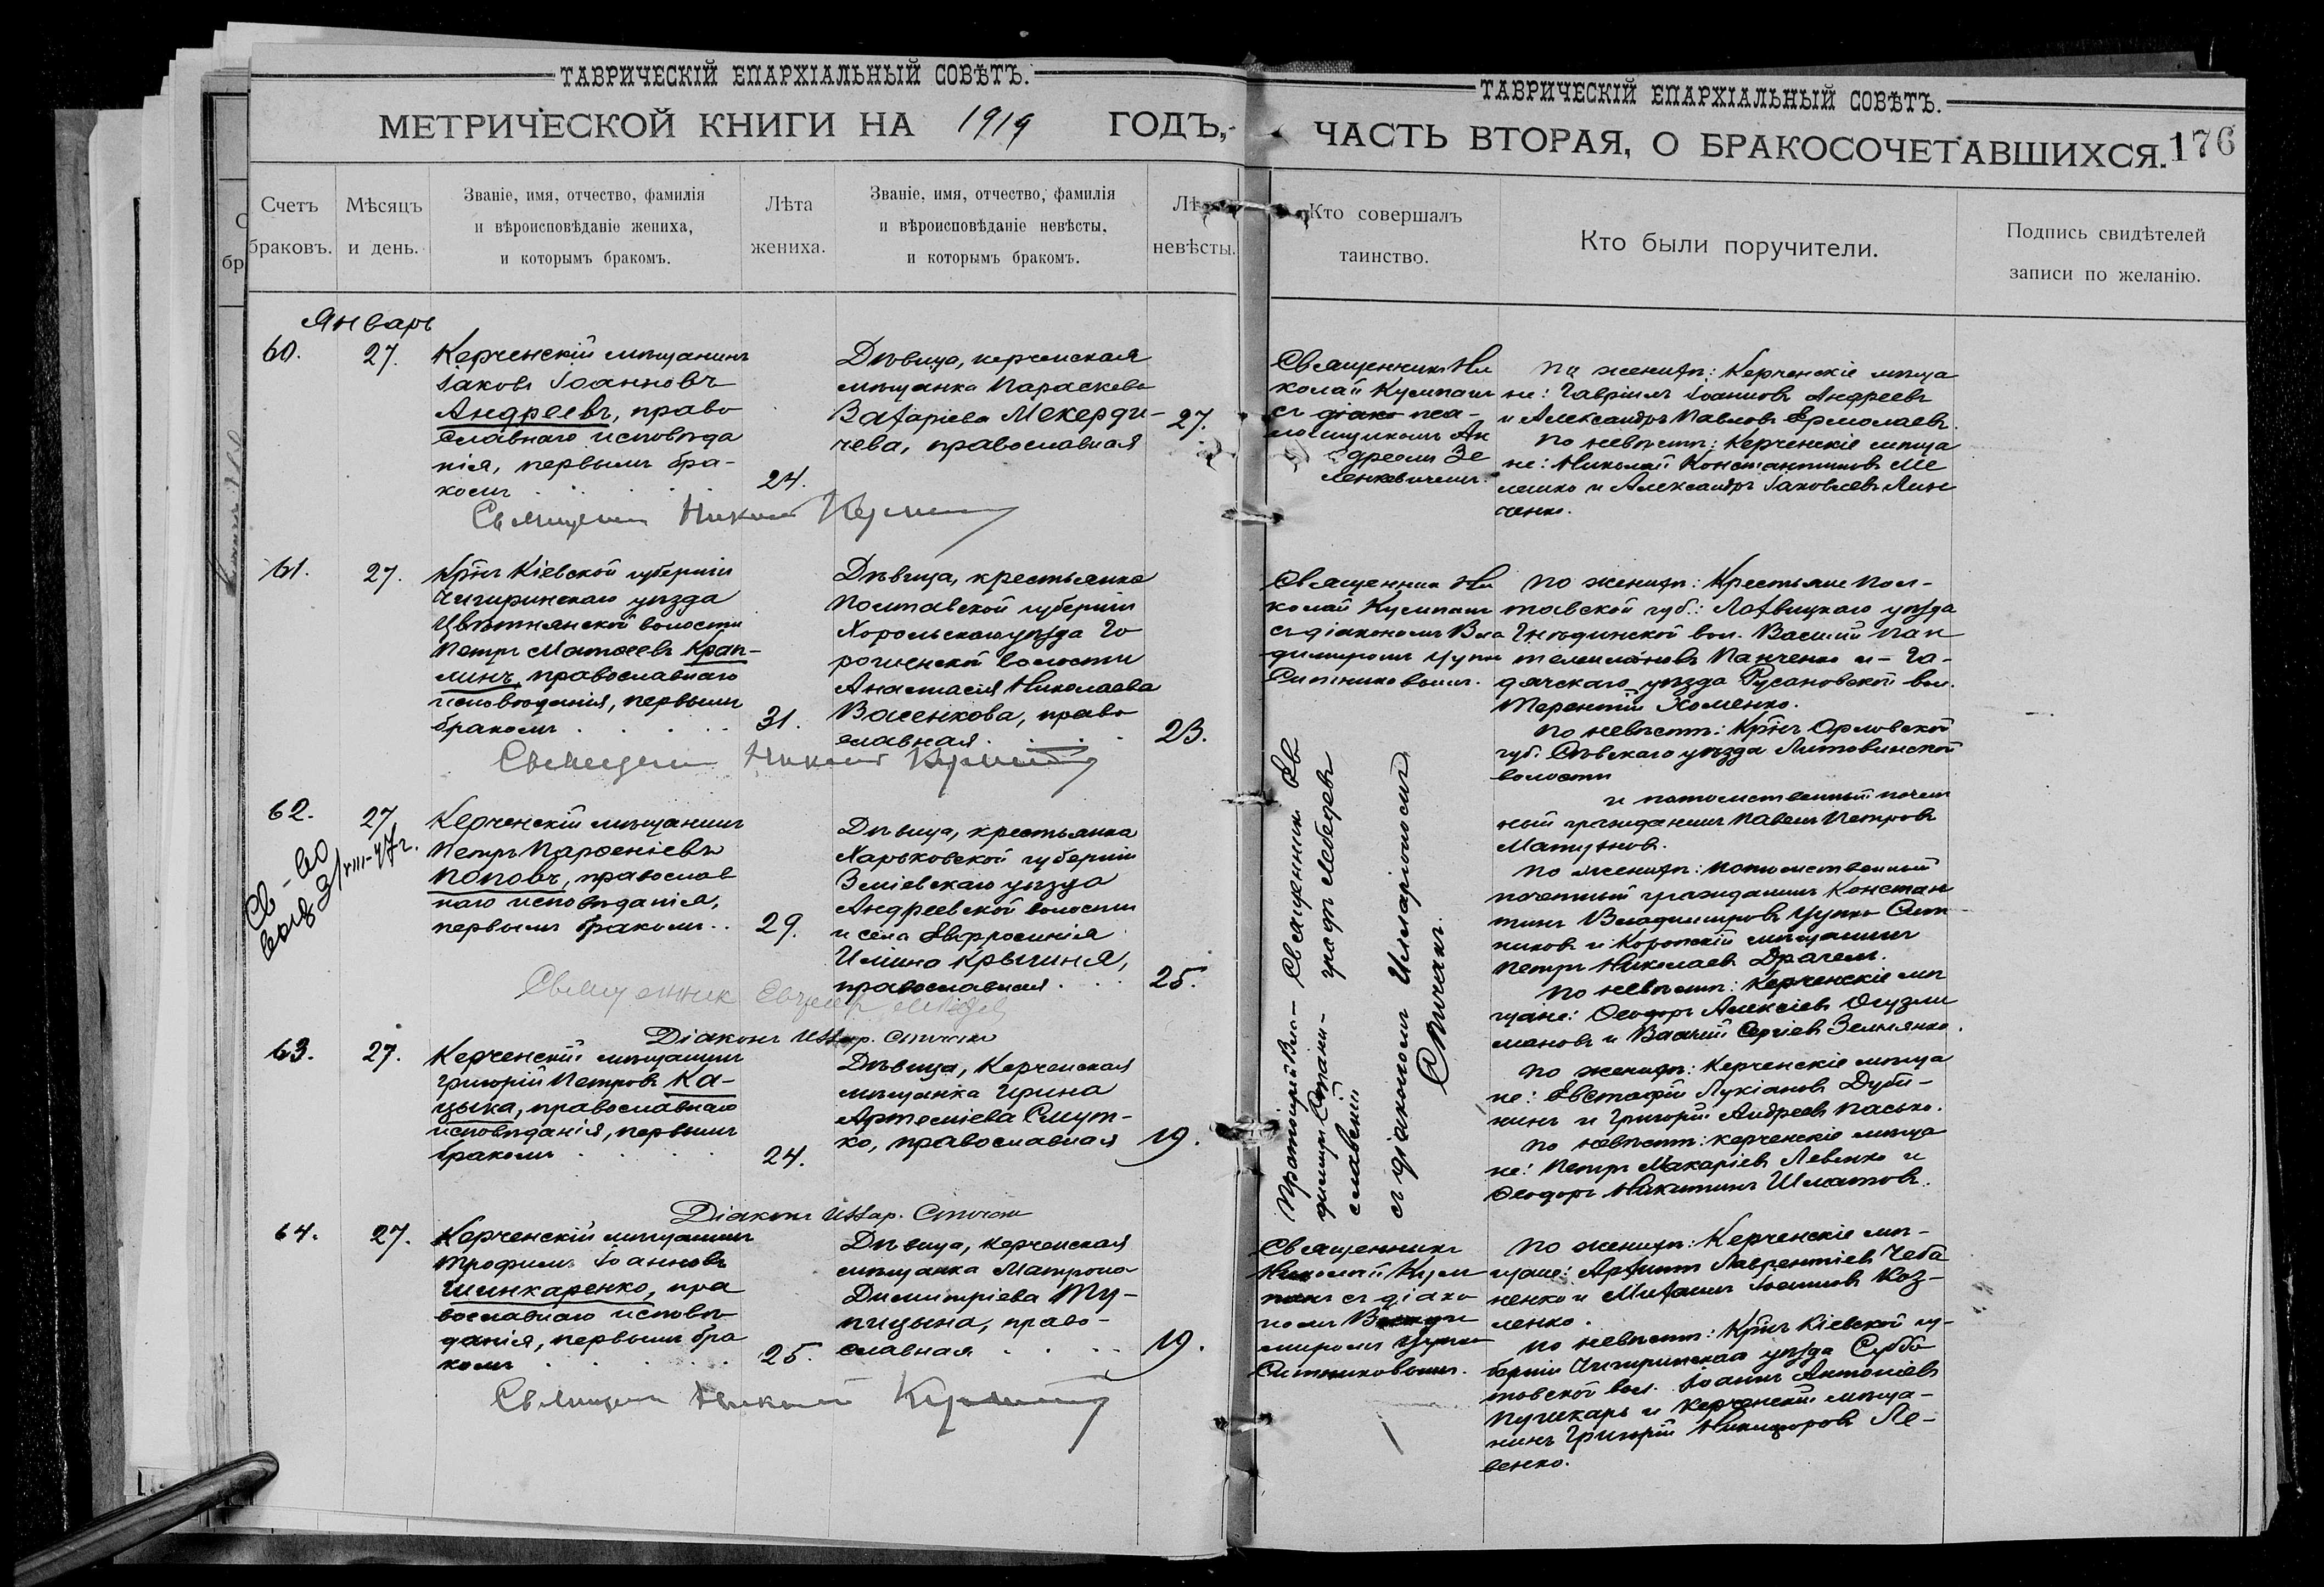 ТАВРИЧЕСКІЙ ЕПАРХІАЛЬНЫЙ СОВѢТЪ.
МЕТРИЧЕСКОЙ КНИГИ НА 1919 ГОДЪ,
Счетъ браковъ.
Мѣсяцъ и день.
Званіе, имя, отчество, фамилія
и вѣроисповѣданіе жениха,
и которымъ бракомъ.
Лѣта жениха.
Званіе, имя, отчество, фамилія
и вѣроисповѣданіе невѣсты,
и которымъ бракомъ.
невѣсты.
ТАВРИЧЕСКІЙ ЕПАРХІАЛЬНЫЙ СОВѢТЪ.
ЧАСТЬ ВТОРАЯ, О БРАКОСОЧЕТАВШИХСЯ.
176
Кто совершалъ
таинство.
Кто были поручители.
Подпись свидѣтелей
записи по желанію.
Январь
60.
27.
Керченскій мѣщанинъ
Іаковъ Іоанновъ
Андреевъ, право
славнаго исповѣда
нія, первымъ бра-
комъ
24.
Дѣвица, керченская
мѣщанка Параскева
Захаріева Мекерди-
чева, православная
27.
Священникъ Ни
колай
съ діако пса-
ломщикомъ Ан
дреемъ Зе
ленкевичемъ.
По женихѣ: Керченскіе мѣща
не: Гавріилъ Іоанновъ Андреевъ
и Александръ Павловъ Ермолаевъ.
По невѣстѣ: Керченскіе мѣща
не: Николай Константиновъ Ме
лешко и Александръ Іаковлевъ Лин
ченко.
Священникъ Николай
61.
27.
Крнъ Кіевской губерніи
Чигиринскаго уѣзда
Цвѣтнянской волости
Петръ Матѳеевъ Крап-
линъ, православнаго
исповѣданія, первымъ
бракомъ
31.
Дѣвица, крестьянка
Полтавской губерніи
Хорольскаго уѣзда Го
рошенской волости
Анастасія Николаева
Васенкова, право
славная
23.
Священникъ Ни
колай
съ діакономъ Вла
диміромъ Цупко
Ситниковымъ.
По женихѣ: Крестьяне Пол-
тавской губ.: Лохвицкаго уѣзда
Гнѣдинской вол. Василій Пан
телеимоновъ Панченко и - Га-
дячскаго уѣзда Русановской вол.
Терентій Хоменко.
По невѣстѣ: Крнъ Орловской
губ. Сѣвскаго уѣзда Литовинской
волости
и потомственный почет
ный гражданинъ Павелъ Петровъ
Священникъ Николай
62.
27
Св-во
выд 3/VIII-47г.
Керченскій мѣщанинъ
Петръ Парѳеніевъ
Поповъ, православ
наго исповѣданія,
первымъ бракомъ
29.
Дѣвица, крестьянка
Харьковской губерніи
Зміевскаго уѣзда
Андреевской волости
и села Евфросинія
Ильина Крыгиня,
православная
25.
Протоіерей Вла-
димиръ Стани-
славскій
Священникъ Ев
графъ Лебедевъ
съ діакономъ Илларіономъ
Спичакъ.
По женихѣ: Потомственный
почетный гражданинъ Констан
тинъ Владиміровъ Цупко Сит
никовъ и Коропскій мѣщанинъ
Петръ Николаевъ Драчемъ.
По невѣстѣ: Керченскіе мѣ
щане: Ѳеодоръ Алексіевъ Огузма
мановъ и Василій Сергіевъ Землянко.
Священникъ
Діаконъ Иллар. Спичакъ
63.
27.
Керченскій мѣщанинъ
Григорій Петровъ Ка-
цыка, православнаго
исповѣданія, первымъ
бракомъ
24.
Дѣвица, Керченская
мѣщанка Ирина
Артеміева Смут-
ко, православная
19.
По женихѣ: Керченскіе мѣща
не: Евстафій Лукіановъ Дуби-
нинъ и Григорій Андреевъ Пасько.
По невѣстѣ: Керченскіе мѣща
не: Петръ Макаріевъ Левенко и
Ѳеодоръ Никитинъ Шматовъ.
Діаконъ Иллар. Спичакъ
64.
27.
Керченскій мѣщанинъ
Трофимъ Іоанновъ
Шинкаренко, пра
вославнаго исповѣ-
данія, первымъ бра
комъ
25.
Дѣвица, керченская
мѣщанка Матрона
Димитріева Ту-
пицына, право-
славная
19.
Священникъ
Николай
съ діако
номъ Влади
міромъ Цупко
Ситниковымъ.
По женихѣ: Керченскіе мѣ-
щане: Архиппъ Лаврентіевъ Чеба
ненко и Михаилъ Іоанновъ Коз-
ленко.
По невѣстѣ: Крнъ Кіевской гу-
берніи Чигиринскаго уѣзда Суббо
товской вол. Іоаннъ Антоніевъ
Пушкарь и Керченскій мѣща-
нинъ Григорій Никифоровъ Ле-
венко.
Священникъ Николай